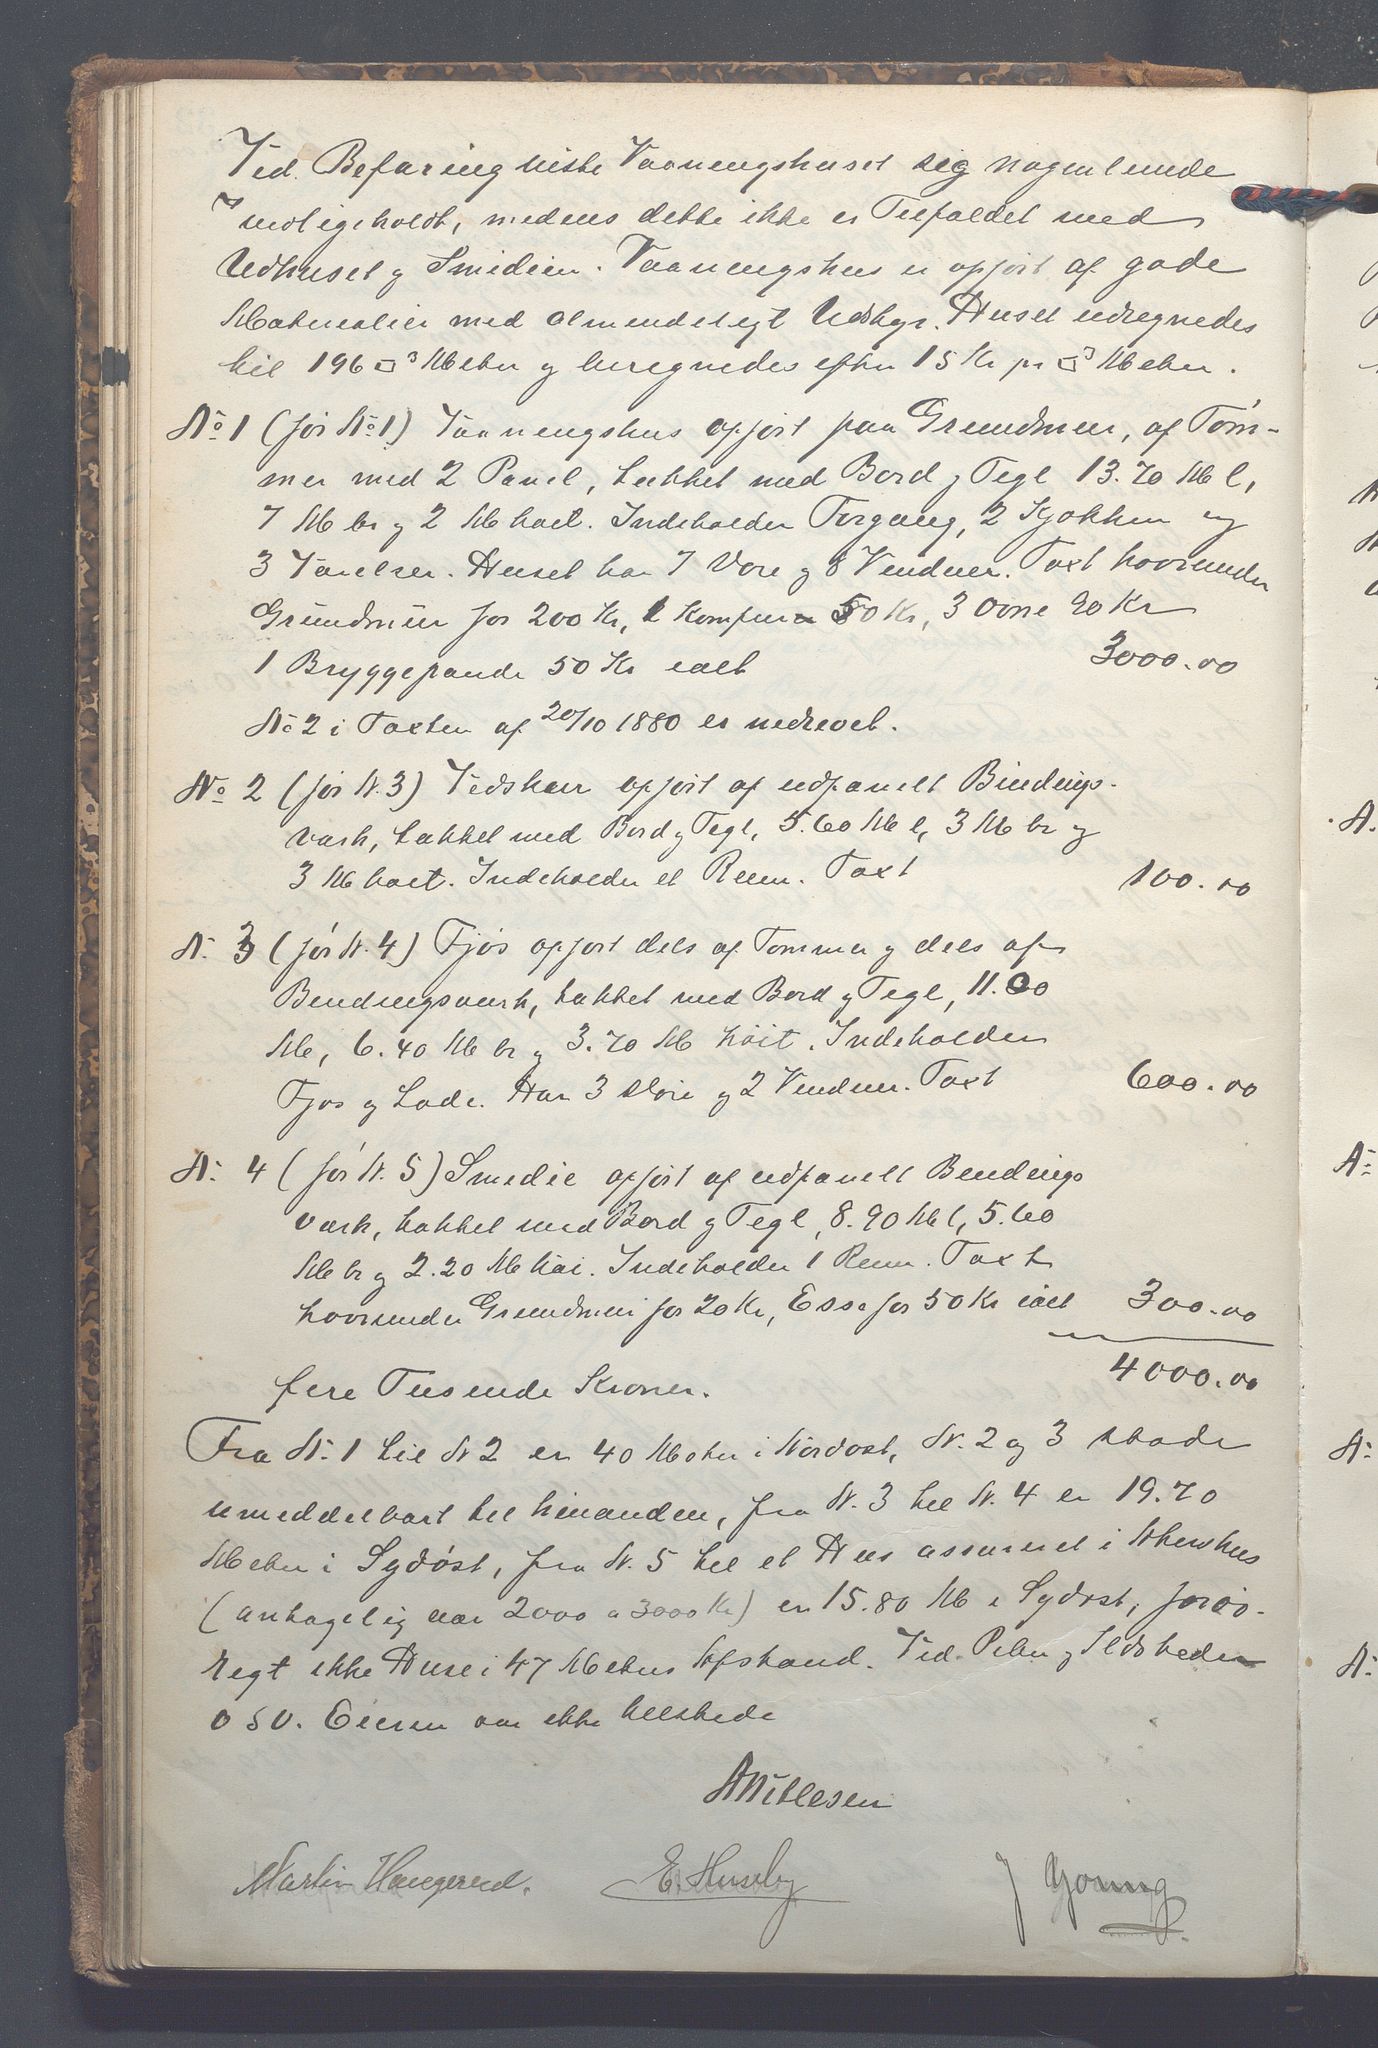 Ved Befaring viste Vaaningshuset sig nogenlunde
vedligeholdt, medens dette ikke er Tilfældet med
Udhuset og Smidien. Vaaningshus er opført af gode
Materialier med almindeligt Udstyr. Huset udregnedes
til 196 □³ Meter og beregnedes efter 15 Kr pr □³ Meter.
No 1 (før No 1) Vaaningshus opført paa Grundmur, af Tøm-
mer med 2 Panel, tækket med Bord og Tegl 13.70 M l,
7 M br og 2 M høit. Indeholder Forgang, 2 Kjøkken og
3 Værelser. Huset har 7 Døre og 8 Vinduer. Taxt hvorunder
Grundmur for 200 Kr, 1 Komfur 50 Kr, 3 Ovne 90 Kr
1 Bryggepande 50 Kr ialt 3000.00
No 2 i Taxten af 20/10 1880 er nedrevet.
No 2 (før N. 3) Vedskur opført af udpanelt Bindings-
værk, tækket med Bord og Tegl, 5.60 M l, 3 M br og
3 M høit. Indeholder et Rum. Taxt 100.00
N. 3 (før N. 4) Fjøs opført dels af Tømmer og dels af
Bindingsværk, tækket med Bord og Tegl, 11.00
M l, 6.40 M br og 3.70 M høit. Indeholder
Fjøs og Lade. Har 3 Døre og 2 Vinduer. Taxt 600.00
N. 4 (før N. 5) Smedie opført af udpanelt Bindings
værk, tækket med Bord og Tegl, 8.90 M l, 5.60
M br og 2.20 M høi. Indeholder 1 Rum. Taxt
hvorunder Grundmur for 20 Kr, Esse for 50 Kr ialt 300.00
4000.00
fire Tusinde Kroner.
Fra N. 1 til N 2 er 40 Meter i Nordost, N. 2 og 3 støde
umiddelbart til hinanden, fra N. 3 til N. 4 er 19.70
Meter i Sydøst, fra N. 5 til et Hus assureret i Akershus
(antagelig 2000 a 3000 Kr) er 15.80 M i Sydøst, forøv-
rigt ikke Huse i 47 Meters Afstand. Ved Piber og Ildsteder
o s v. Eieren var ikke tilstede
A Nitlesen
Martin Haugerud. E. Huseby J